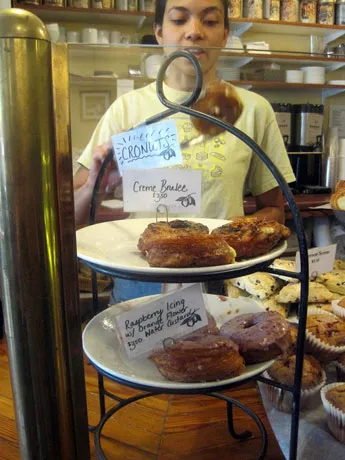 CRONUTS
Creme Brulee
$3.50
Raspberry Icing
w/ Orange Flower
Water Custard
$3.50